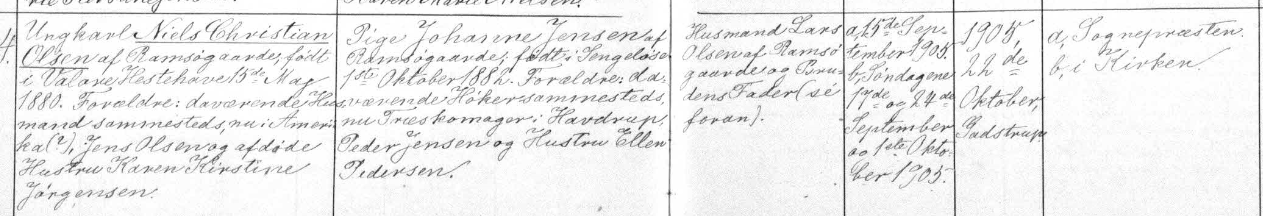 4.
Ungkarl Niels Christian
Olsen af Ramsøgaarde, født
i Valore, Hestehave 15de Maj
1880. Forældre: daværende Hus-
mand sammesteds, nu i Ameri-
ka(?), Jens Olsen og afdøde
Hustru Karen Kirstine
Jørgensen.
Pige Johanne Jensen af
Ramsøgaarde, født i Jengeløse
1ste Oktober 1882. Forældre: da-
værende Høker sammesteds,
nu Træskomager i Havdrup,
Peder Jensen og Hustru Ellen
Pedersen.
Husmand Lars
Olsen af Ramsø-
gaarde og Bru-
dens Fader (se
foran).
a, 15de Sep-
tember 1905.
b, Søndagene
17de og 24de
September
og 1ste Okto-
ber 1905.
1905,
22de
Oktober,
Gadstrup
a, Sognepræsten.
b, i Kirken.